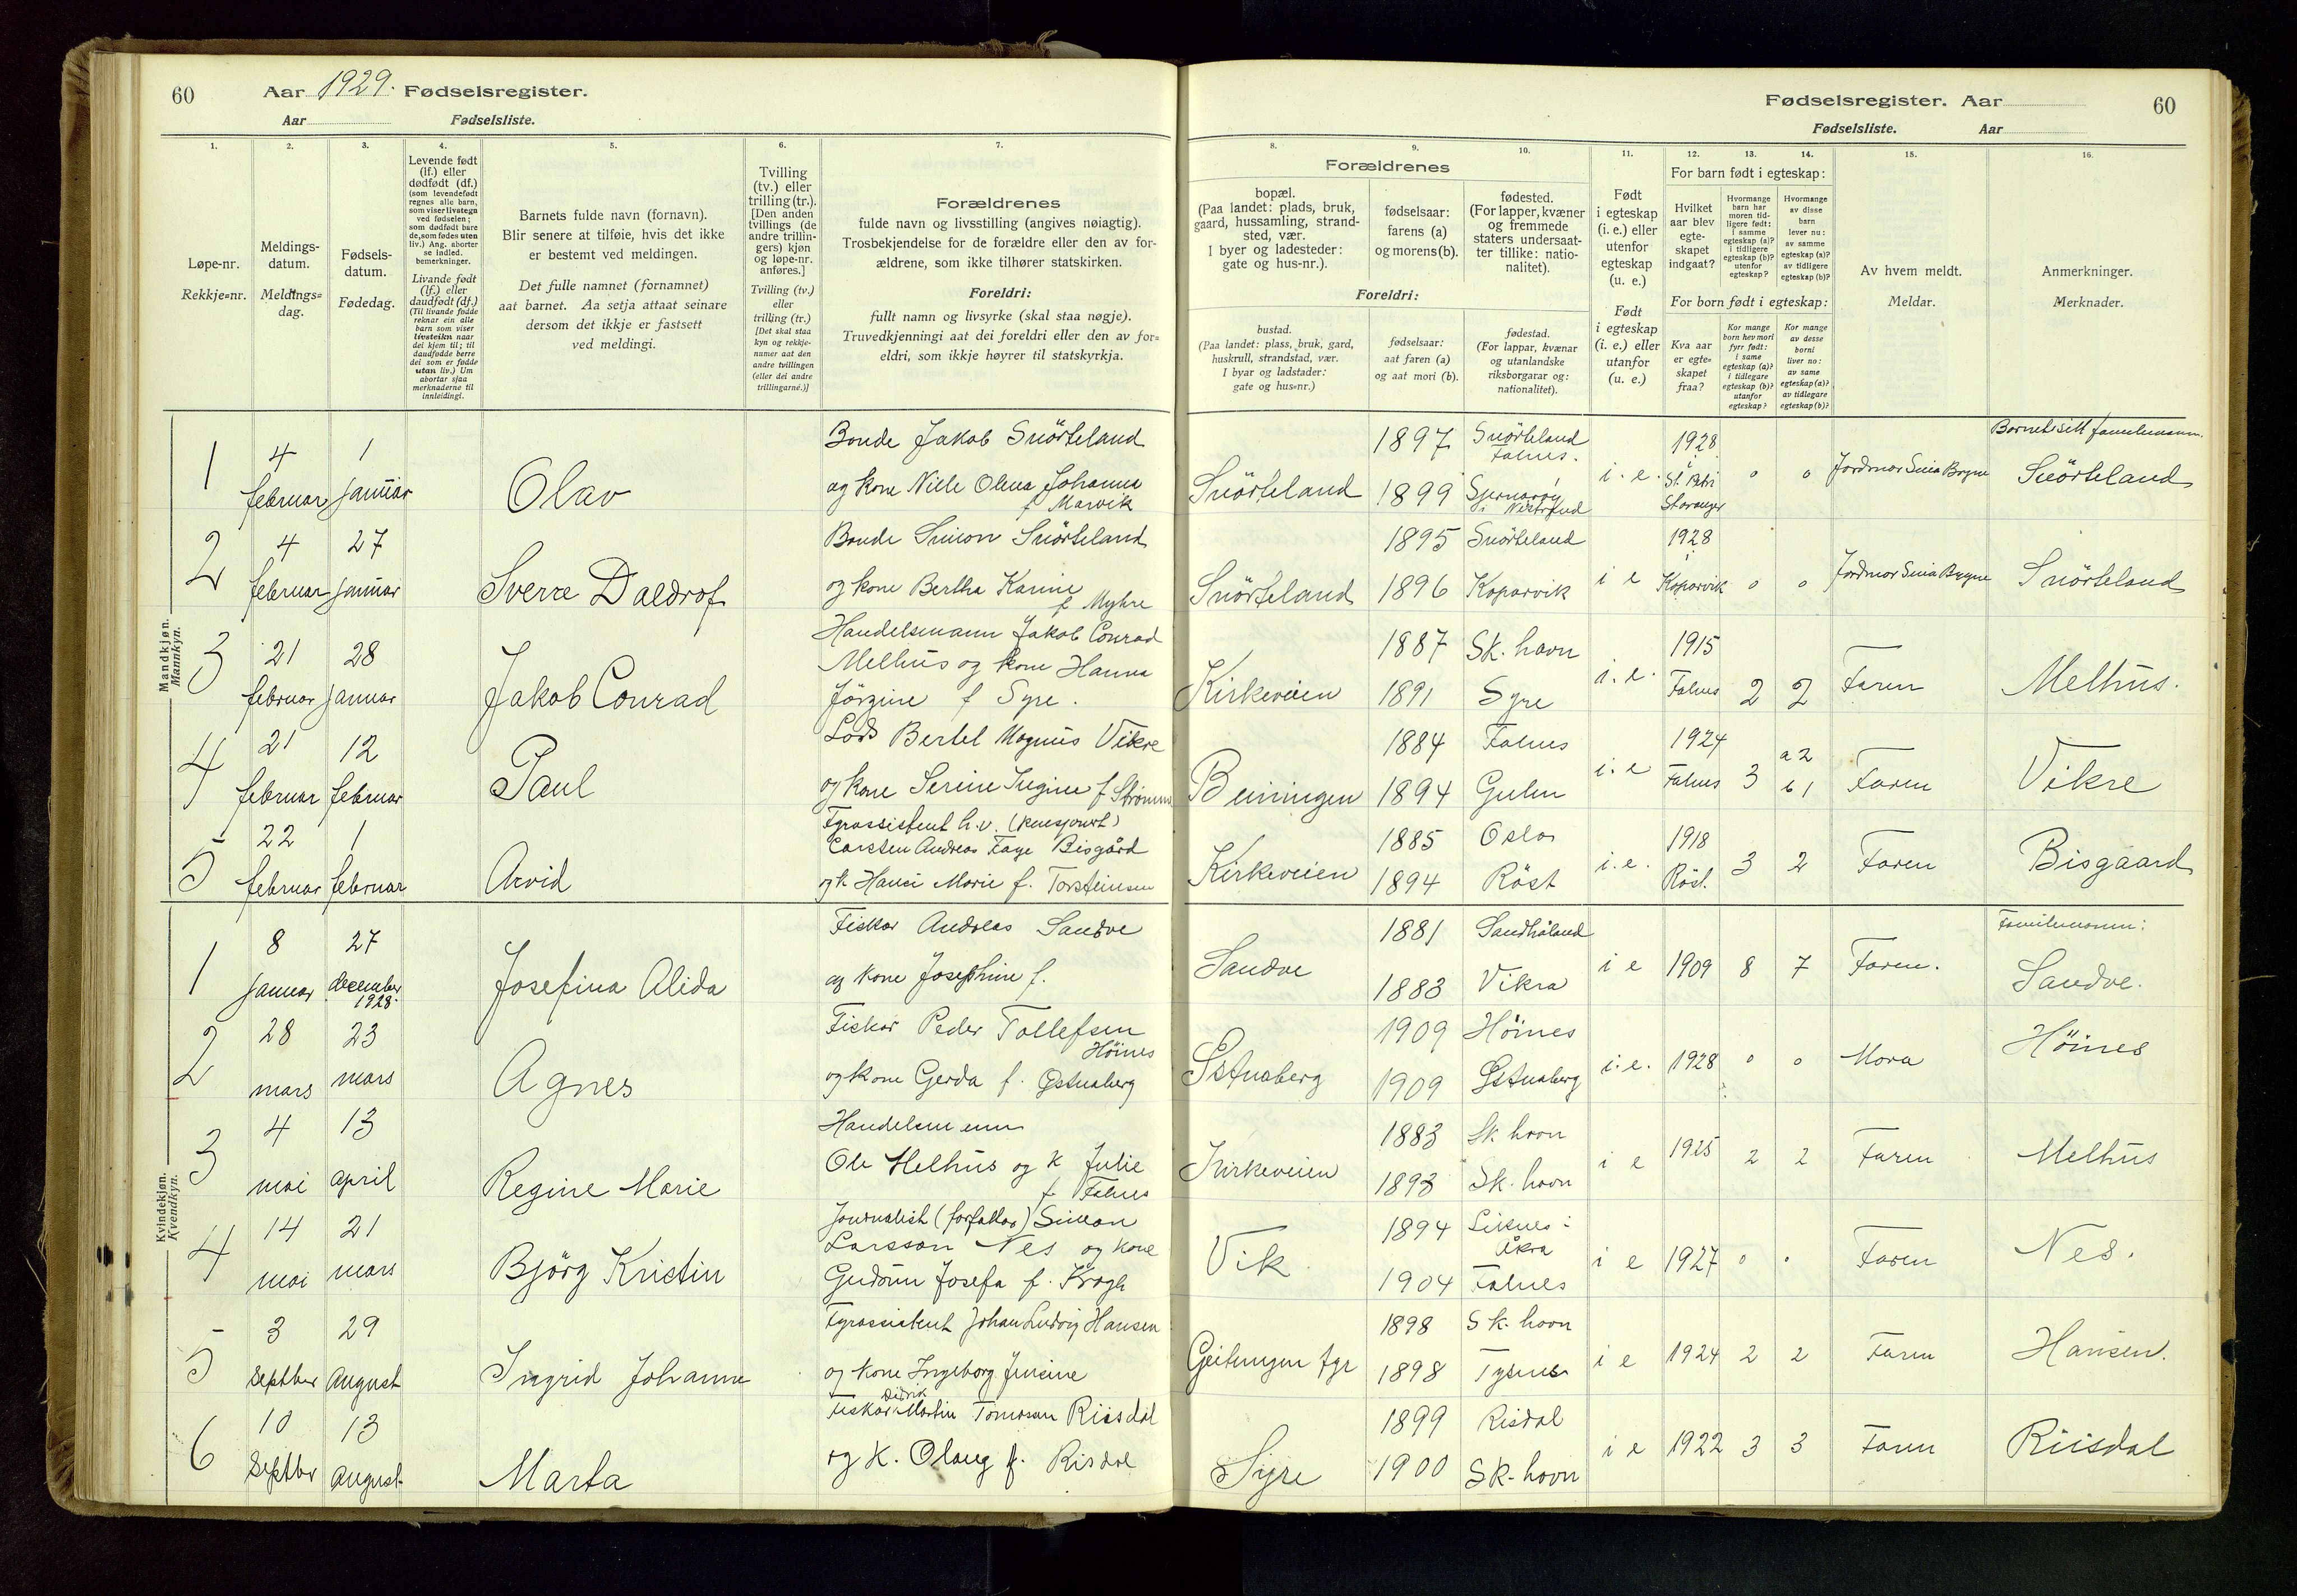 60 Aar 1929. Fødselsregister.
Aar Fødselsliste.
Fødselsregister. Aar 60
Fødselsliste. Aar
1. 2. 3. 4. 5. 6. 7.
Løpe-nr.
Rekkje=nr.
Meldings-
datum.
Meldings=
dag.
Fødsels-
datum.
Fødedag.
Levende født
(lf.) eller
dødfødt (df.)
(som levendefødt
regnes alle barn,
som viser livstegn
ved fødselen;
som dødfødt bare
de, som fødes uten
liv.) Ang. aborter
se indled.
bemerkninger.
Livande født
(lf.) eller
daudfødt (df.)
(Til livande fødde
reknar ein alle
barn som viser
livsteikn naar
dei kjem til; til
daudfødde berre
dei som er fødde
utan liv.) Um
abortar sjaa
merknaderne til
innleidingi.
Barnets fulde navn (fornavn).
Blir senere at tilføie, hvis det ikke
er bestemt ved meldingen.
Det fulle namnet (fornamnet)
aat barnet. Aa setja attaat seinare
dersom det ikkje er fastsett
ved meldingi.
Tvilling
(tv.) eller
trilling (tr.).
[Den anden
tvillings (de
andre trillin-
gers) kjøn
og løpe-nr.
anføres.]
Tvilling (tv.)
eller
trilling (tr.)
[Det skal staa
kyn og rekkje-
numer aat den
andre tvillingen
(eller dei andre
trillingarne.)]
Forældrenes
fulde navn og livsstilling (angives nøiagtig).
Trosbekjendelse for de forældre eller den av for-
ældrene, som ikke tilhører statskirken.
Foreldri:
fullt namn og livsyrke (skal staa nøgje).
Truvedkjenningi aat dei foreldri eller den av for=
eldri, som ikkje høyrer til statskyrkja.
8. 9. 10. 11. 12. 13. 14. 15. 16.
Forældrenes
bopæl.
(Paa landet: plads, bruk,
gaard, hussamling, strand-
sted, vær.
I byer og ladesteder:
gate og hus-nr.).
fødselsaar:
farens (a)
og morens (b).
fødested.
(For lapper, kvæner
og fremmede
staters undersaat-
ter tillike: natio-
nalitet).
Foreldri:
bustad.
(Paa landet: plass, bruk, gard,
huskrull, strandstad, vær.
I byar og ladstader:
gate og hus=nr.)
fødselsaar:
aat faren (a)
og aat mori (b).
fødestad.
(For lappar, kvænar
og utanlandske
riksborgarar og:
nationalitet).
Født
i egteskap
(i. e.) eller
utenfor
egteskap
(u. e.)
Født
i egteskap
(i. e.) eller
utanfor
(u. e.)
For barn født i egteskap:
Hvilket
aar blev
egte-
skapet
indgaat?
Hvormange
barn har
moren tid-
ligere født:
i samme
egteskap (a)?
i tidligere
egteskap (b)?
utenfor
egteskap?
Hvormange
av disse
barn
lever nu:
av samme
egteskap (a)?
av tidligere
egteskap (b)?
For born født i egteskap:
Kva aar
er egte=
skapet
fraa?
Kor mange
born hev mori
fyrr født:
i same
egteskap (a)?
i tidlegare
egteskap (b)?
utanfor
egteskap?
Kor mange
av desse
borni
liver no:
av same
egteskap (a)?
av tidlegare
egteskap (b)?
Av hvem meldt.
Meldar.
Anmerkninger.
Merknader.
Mandkjøn.
Mannkyn.
1 4 februar 1 januar Olav
Bonde Jakob Snörteland
og kone Niele Olena Johanna
f Marvik
Snörteland 1897 Snörteland Falnes.
1899 Sjernaröy i Nedstrand
i. e. 1928 St. Petri Stavanger 0 0 Jordmor Sina Brgne
Barnets sitt familienamn.
Snörteland
2 4 februar 27 januar Sverre Daldrof
Bonde Simon Snörteland
og kone Bertha Karine
f Myhre
Snörteland 1895 Snörteland
1896 Koparvik
i e 1928 i Koparvik 0 0 Jordmor Sina Brgne Snörteland
3 21 februar 28 januar Jakob Conrad
Handelsmann Jakob Conrad
Melhus og kone Hanna
Jörgine f Syre.
Kirkeveien 1887 Sk. havn
1891 Syre
i. e. 1915 Falnes 2 2 Faren Melhus.
4 21 februar 12 februar Paul
Lods Bertel Magnus Vikre
og kone Serine Regine f Strömm
Beiningen 1884 Falnes
1894 Gulen
i. e 1924 Falnes 3 a 2 b 1 Faren Vikre
5 22 februar 1 februar Arvid
Fyrassistent h.v. (pensjonert)
Carsten Andreas Faye Bisgård
og k Hansi Marie f. Torsteinsen
Kirkeveien 1885 Oslo
1894 Röst
i. e. 1918 Röst. 3 2 Faren Bisgaard
Kvindekjøn.
Kvendkyn.
1 8 januar 27 december 1928. Josefina Alida
Fiskar Andreas Sandve
og kone Josephine f.
Sandve 1881 Sandhåland
1883 Vikra
i e 1909 8 7 Faren.
Familienamn:
Sandve.
2 28 mars 23 mars Agnes
Fiskar Peder Tollefsen
Höines
og kone Gerda f. Østnaberg
Østnaberg 1909 Höines
1909 Østnaberg
i. e. 1928 0 0 Mora Höines
3 4 mai 13 april Regine Marie
Handelsmenn
Ole Melhus og k Julie
f Falnes
Kirkeveien 1883 Sk havn
1893 Sk. havn
i e 1925 2 2 Faren Melhus
4 14 mai 21 mars Björg Kristin
Journalist (forfattar) Simon
Larsson Nes og kone
Gudrun Josefa f. Krogh
Vik 1894 Liknes i Åkra
1904 Falnes
i e 1927 0 0 Faren Nes.
5 3 Septber 29 August Ingrid Johanne
Fyrassistent Johan Ludvig Hansen
og kone Ingeborg Jensine
Geitungen fyr 1898 Sk. havn
1898 Tysnes
i e 1924 2 2 Faren Hansen.
6 10 Septbr 13 August Marta
Didrik
Fiskar Martin Tomasen Riisdal
og K. Olaug f. Risdal
Syre 1899 Risdal
1900 Sk-havn
i e 1922 3 3 Faren Riisdal